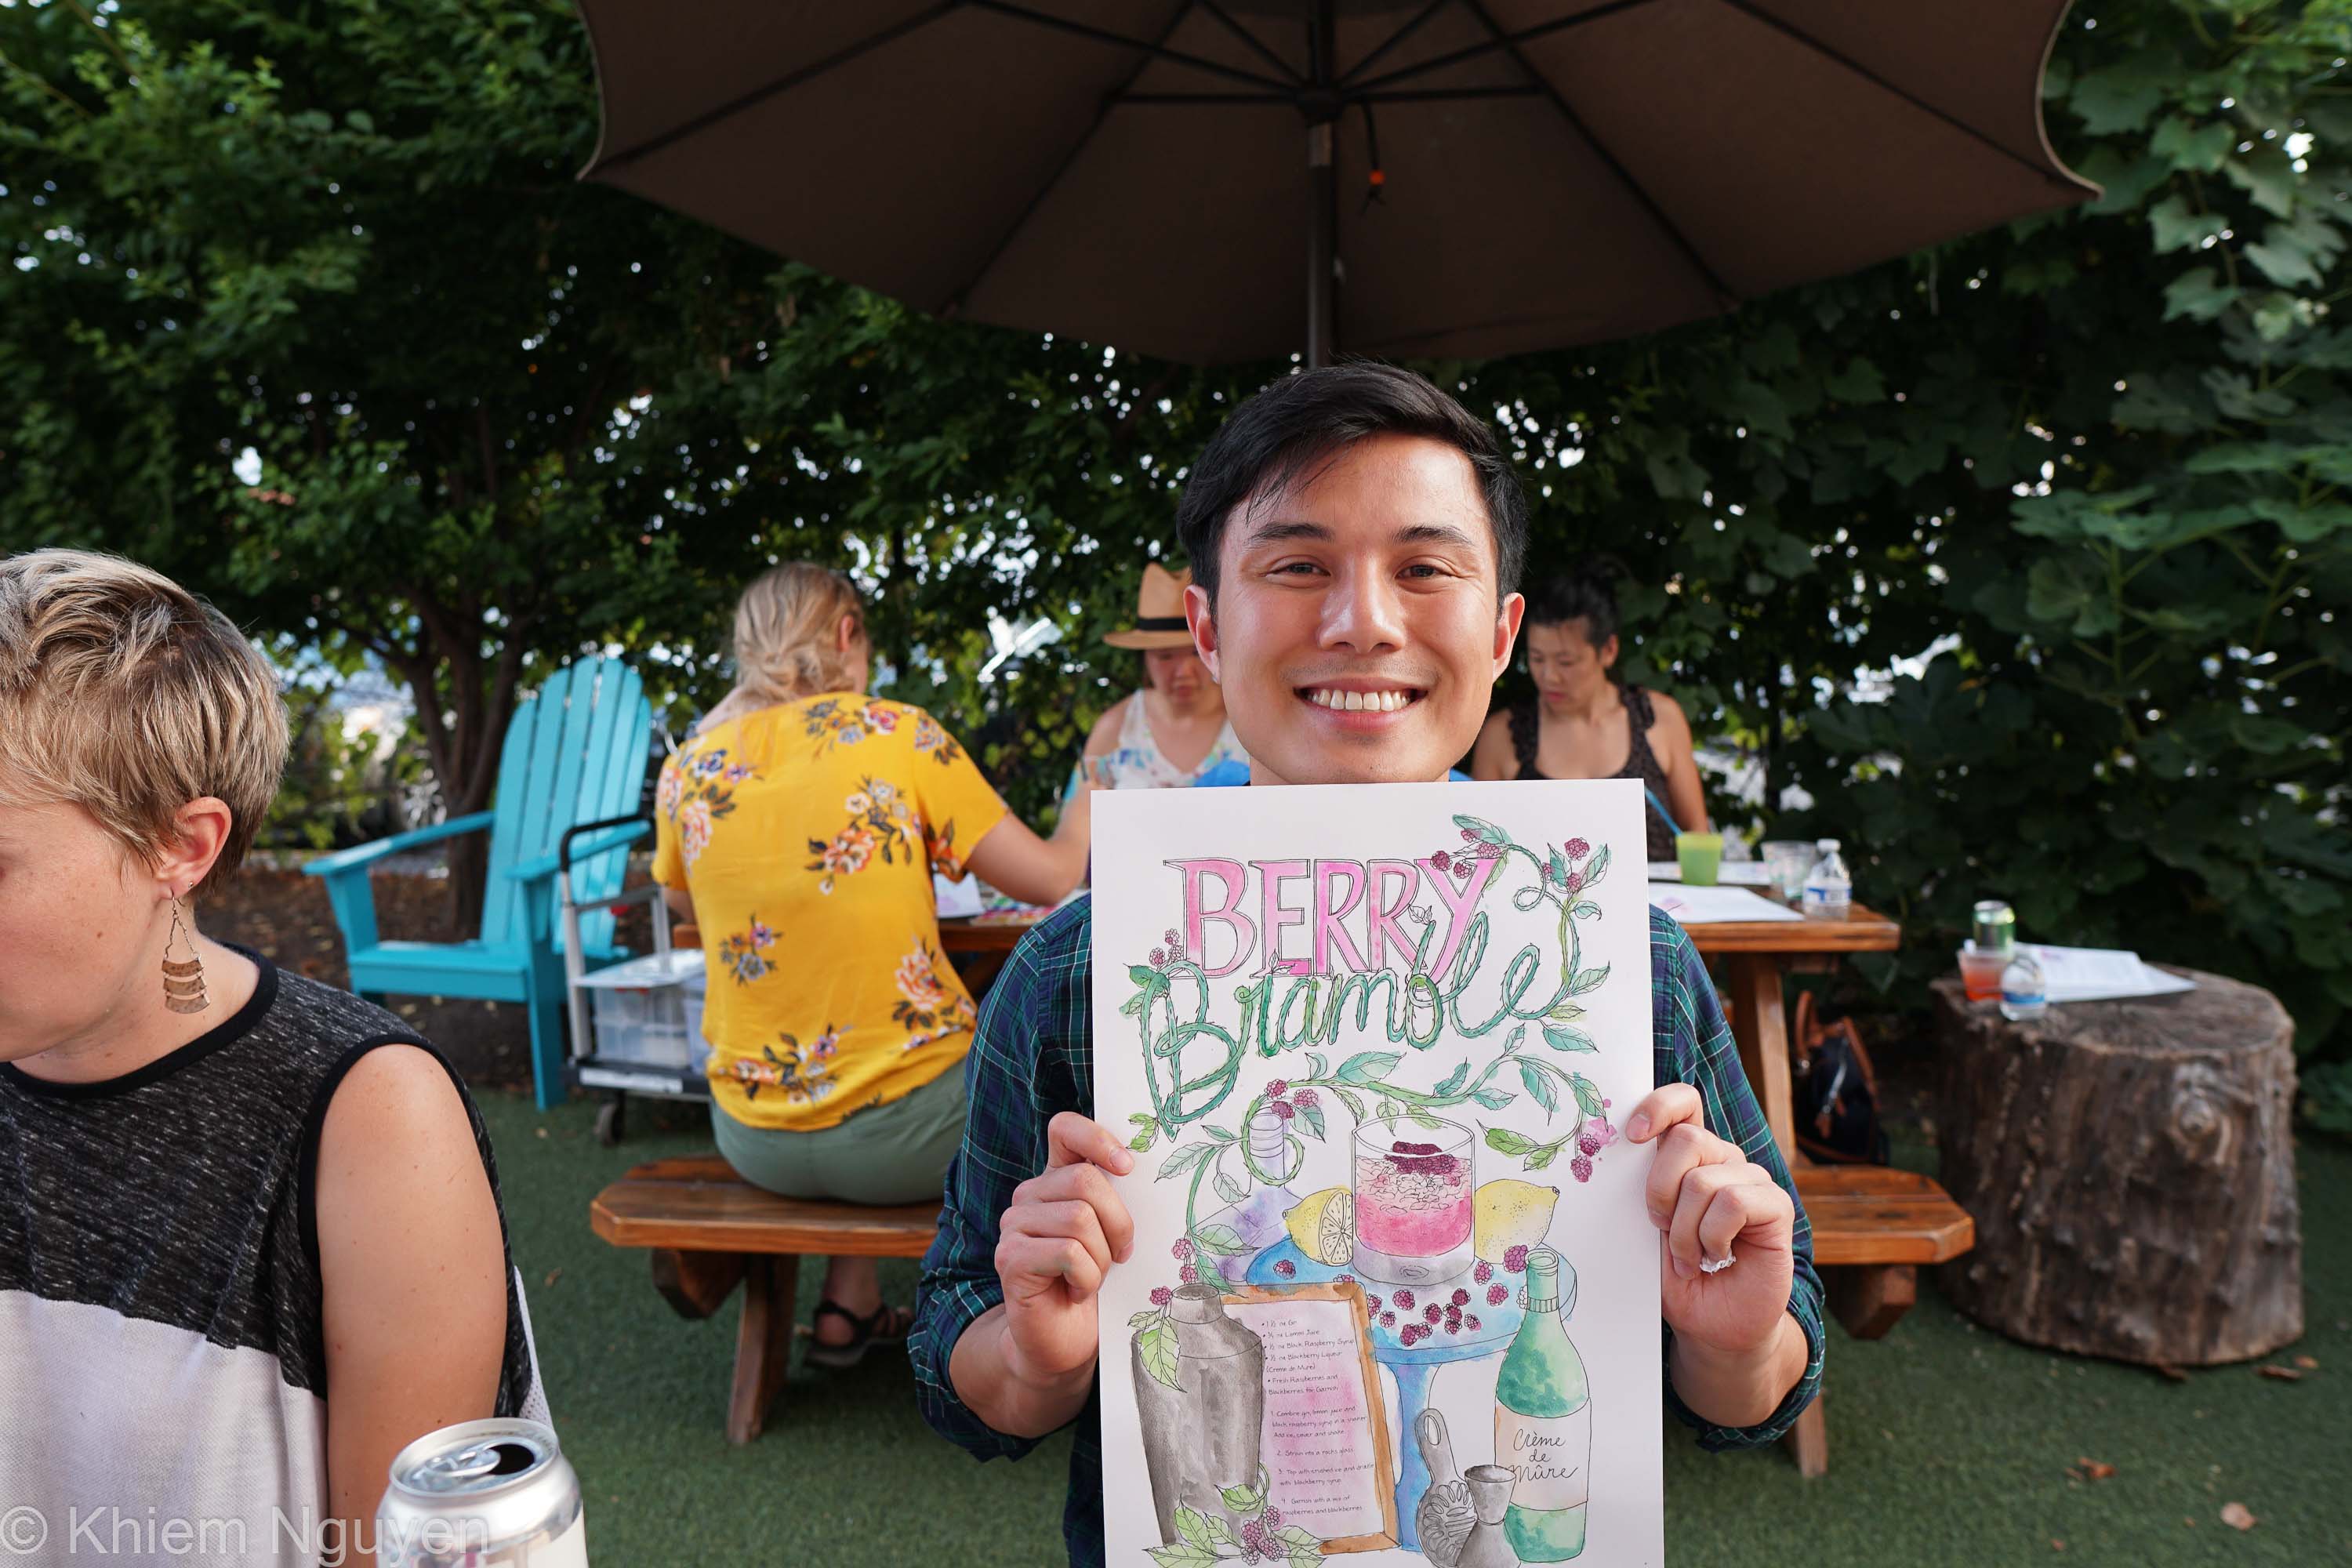 BERRY
Bramble
• 1 ½ oz Gin
• ¾ oz Lemon Juice
• ½ oz Black Raspberry Syrup
• ½ oz Blackberry Liqueur
(Crème de Mûre)
• Fresh Raspberries and
Blackberries for Garnish
1. Combine gin, lemon juice and
black raspberry syrup in a shaker
Add ice, cover and shake.
2. Strain into a rocks glass
3. Top with crushed ice and drizzle
with blackberry syrup
4. Garnish with a mix of
raspberries and blackberries
Crème
de
Mûre
© Khiem Nguyen